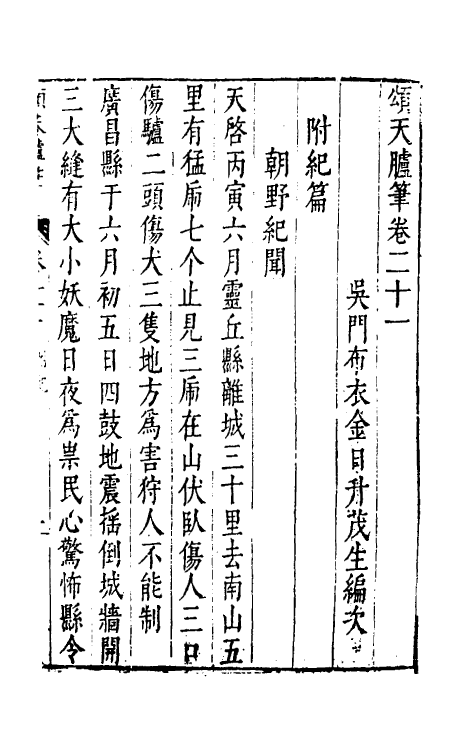 頌天臚筆卷二十一
吳門布衣金日升茂生編次
附紀篇
朝野紀聞
天啓丙寅六月靈丘縣離城三十里去南山五
里有猛虎七个止見三虎在山伏臥傷人三口
傷驢二頭傷犬三隻地方爲害狩人不能制
廣昌縣于六月初五日四鼓地震揺倒城牆開
三大縫有大小妖魔日夜爲祟民心驚怖縣令